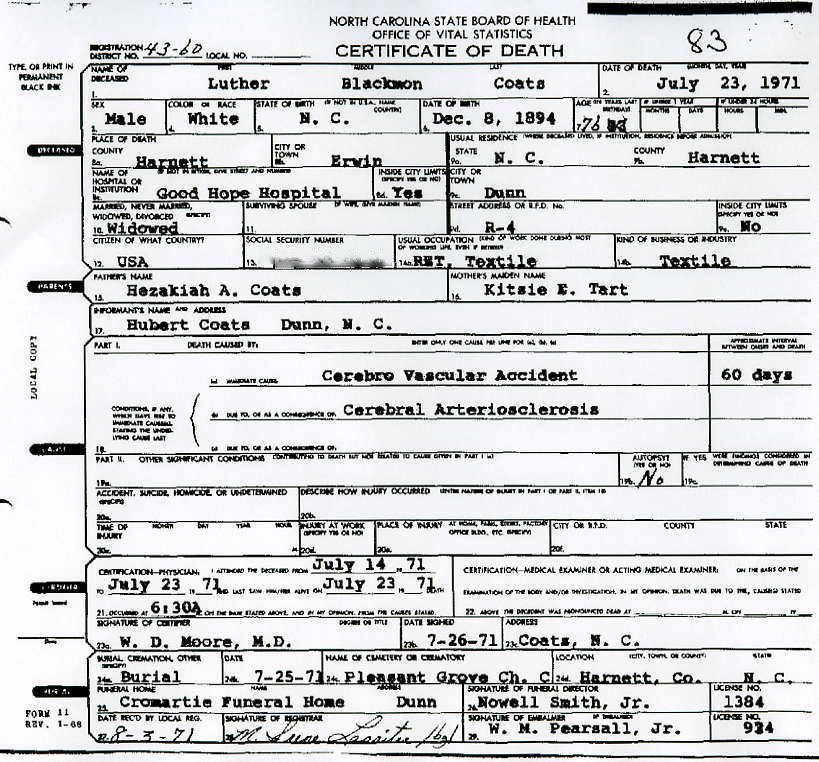 NORTH CAROLINA STATE BOARD OF HEALTH
OFFICE OF VITAL STATISTICS
CERTIFICATE OF DEATH
83
REGISTRATION DISTRICT NO. 43-60 LOCAL NO.
TYPE, OR PRINT IN
PERMANENT
BLACK INK
NAME OF DECEASED FIRST MIDDLE LAST DATE OF DEATH (MONTH, DAY, YEAR)
1. Luther Blackmon Coats 2. July 23, 1971
SEX COLOR OR RACE STATE OF BIRTH (IF NOT IN U.S.A. NAME COUNTRY) DATE OF BIRTH AGE (IN YEARS LAST BIRTHDAY) IF UNDER 1 YEAR IF UNDER 24 HOURS
MONTHS DAYS HOURS MIN.
3. Male 4. White 5. N. C. 6. Dec. 8, 1894 7. 76
DECEASED
PLACE OF DEATH USUAL RESIDENCE (WHERE DECEASED LIVED, IF INSTITUTION, RESIDENCE BEFORE ADMISSION)
COUNTY CITY OR TOWN STATE COUNTY
8a. Harnett 8b. Erwin 9a. N. C. 9b. Harnett
NAME OF HOSPITAL OR INSTITUTION (IF NOT IN EITHER, GIVE STREET AND NUMBER) INSIDE CITY LIMITS (SPECIFY YES OR NO) CITY OR TOWN
8c. Good Hope Hospital 8d. Yes 9c. Dunn
MARRIED, NEVER MARRIED, WIDOWED, DIVORCED (SPECIFY) SURVIVING SPOUSE (IF WIFE, GIVE MAIDEN NAME) STREET ADDRESS OR R.F.D. No. INSIDE CITY LIMITS (SPECIFY YES OR NO)
10. Widowed 11. 9d. R-4 9e. No
CITIZEN OF WHAT COUNTRY? SOCIAL SECURITY NUMBER USUAL OCCUPATION (KIND OF WORK DONE DURING MOST OF WORKING LIFE, EVEN IF RETIRED) KIND OF BUSINESS OR INDUSTRY
12. USA 13. 14a. RET. Textile 14b. Textile
PARENTS
FATHER'S NAME MOTHER'S MAIDEN NAME
15. Hezakiah A. Coats 16. Kitsie E. Tart
INFORMANT'S NAME AND ADDRESS
17. Hubert Coats Dunn, N. C.
LOCAL COPY
PART I. DEATH CAUSED BY: ENTER ONLY ONE CAUSE PER LINE FOR (a), (b), (c) APPROXIMATE INTERVAL BETWEEN ONSET AND DEATH
(a) IMMEDIATE CAUSE Cerebro Vascular Accident 60 days
CONDITIONS, IF ANY, WHICH GAVE RISE TO IMMEDIATE CAUSE(a), STATING THE UNDERLYING CAUSE LAST
(b) DUE TO, OR AS A CONSEQUENCE OF: Cerebral Arteriosclerosis
18. (c) DUE TO, OR AS A CONSEQUENCE OF:
CAUSE
PART II. OTHER SIGNIFICANT CONDITIONS CONTRIBUTING TO DEATH BUT NOT RELATED TO CAUSE GIVEN IN PART I (a) AUTOPSY (YES OR NO) IF YES WERE FINDINGS CONSIDERED IN DETERMINING CAUSE OF DEATH
19a. 19b. No 19c.
ACCIDENT, SUICIDE, HOMICIDE, OR UNDETERMINED (SPECIFY) DESCRIBE HOW INJURY OCCURRED (ENTER NATURE OF INJURY IN PART I OR PART II, ITEM 18)
20a. 20b.
TIME OF INJURY MONTH DAY YEAR HOUR INJURY AT WORK (SPECIFY YES OR NO) PLACE OF INJURY AT HOME, FARM, STREET, FACTORY, OFFICE BLDG., ETC. (SPECIFY) CITY OR R.F.D. COUNTY STATE
20c. M. 20d. 20e. 20f.
CERTIFIER
CERTIFICATION—PHYSICIAN: I ATTENDED THE DECEASED FROM July 14 19 71 CERTIFICATION—MEDICAL EXAMINER OR ACTING MEDICAL EXAMINER: ON THE BASIS OF THE
TO July 23 19 71 AND LAST SAW HIM/HER ALIVE ON July 23 19 71 DEATH EXAMINATION OF THE BODY AND/OR INVESTIGATION, IN MY OPINION, DEATH WAS DUE TO THE CAUSE(S) STATED
21. OCCURRED AT 6:30A M. ON THE DATE STATED ABOVE, AND IN MY OPINION, FROM THE CAUSES STATED. 22. ABOVE THE DECEDENT WAS PRONOUNCED DEAD AT M. ON 19
SIGNATURE OF CERTIFIER DEGREE OR TITLE DATE SIGNED ADDRESS
23a. W. D. Moore, M.D. 23b. 7-26-71 23c. Coats, N. C.
BURIAL, CREMATION, OTHER (SPECIFY) DATE NAME OF CEMETERY OR CREMATORY LOCATION (CITY, TOWN, OR COUNTY) STATE
24a. Burial 24b. 7-25-71 24c. Pleasant Grove Ch. C 24d. Harnett, Co. N. C.
BURIAL
FUNERAL HOME NAME ADDRESS SIGNATURE OF FUNERAL DIRECTOR LICENSE NO.
25. Cromartie Funeral Home Dunn 26. Nowell Smith, Jr. 1384
FORM 11
REV. 1-68
DATE REC'D BY LOCAL REG. SIGNATURE OF REGISTRAR SIGNATURE OF EMBALMER IF EMBALMED LICENSE NO.
27. 8-3-71 28. 29. W. M. Pearsall, Jr. 934